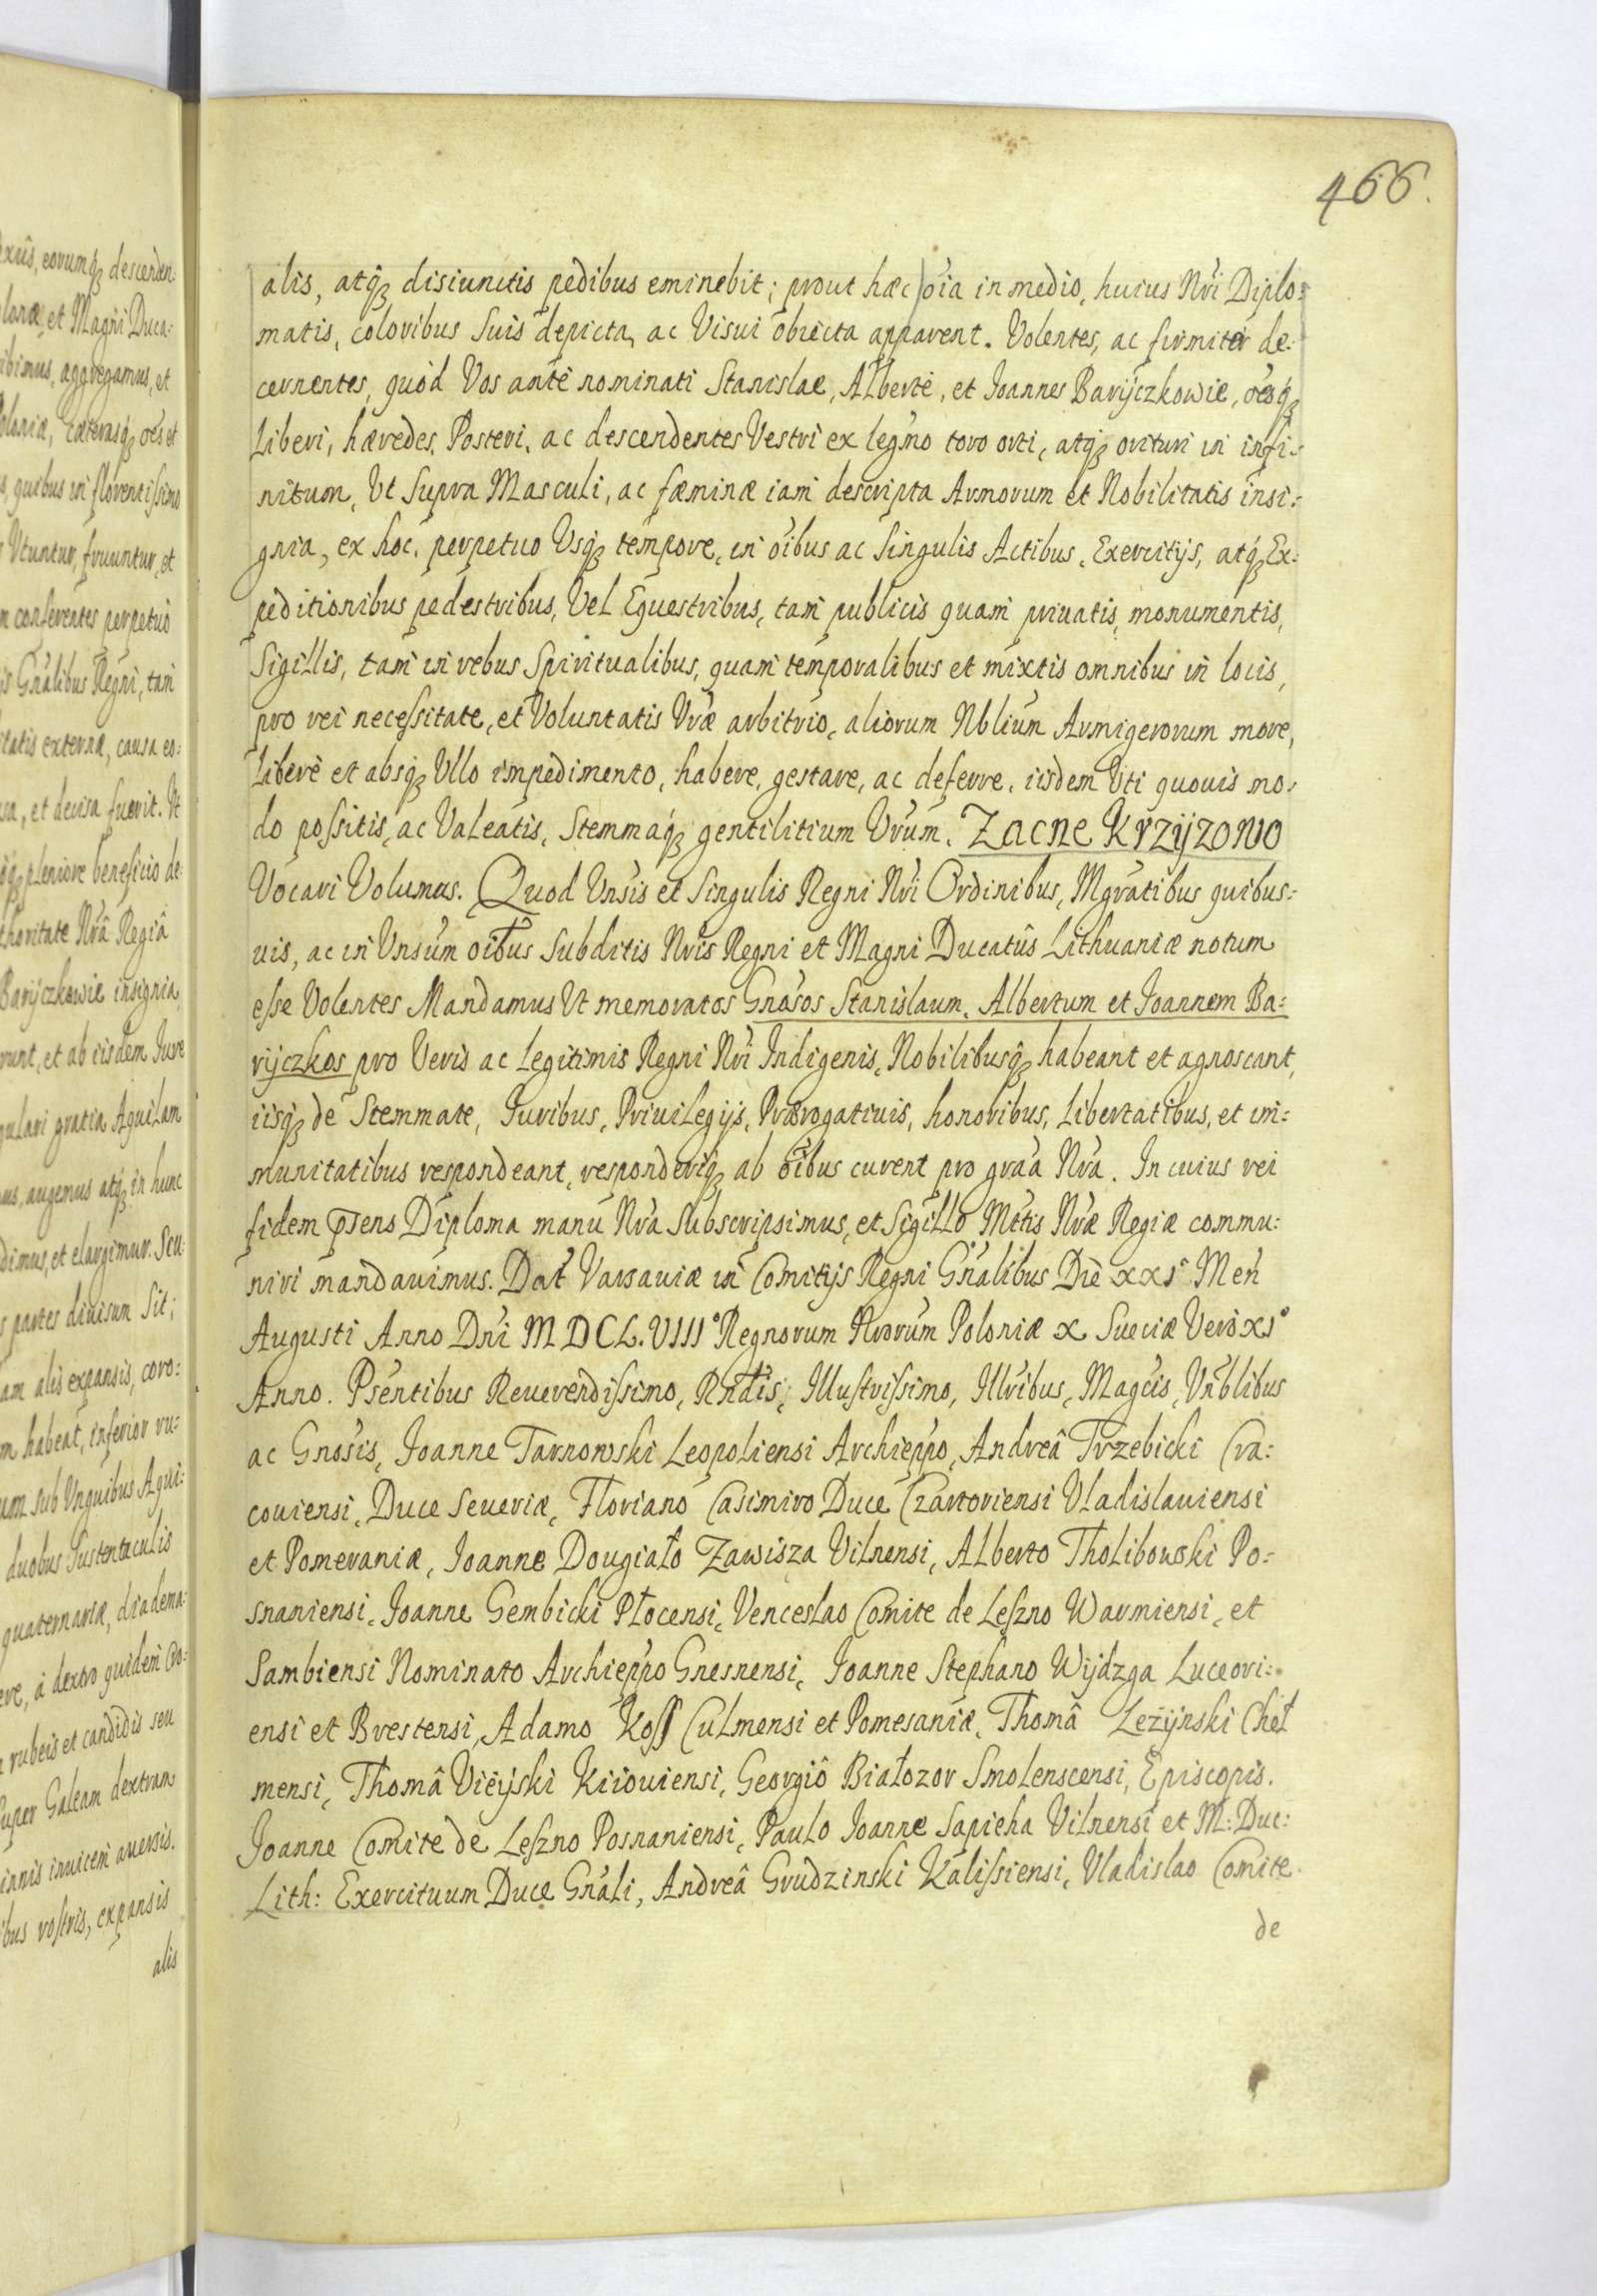 466.
alis, atq₃ disiunctis pedibus eminebit; prout hæc oia in medio, huius Nri Diplo:
matis, coloribus suis depicta, ac Visui obiecta apparent. Volentes, ac firmiter de:
cernentes, quòd Vos ante nominati Stanislae, Alberte, et Joannes Barijczkowie, oesq₃
Liberi, hæredes, Posteri, ac descendentes Vestri ex legmo toro orti, atq₃ orituri in infi:
nitum, Ut supra Masculi, ac fæminæ iam descripta Armorum et Nobilitatis insi:
gnia, ex hoc, perpetuo Usq₃ tempore, in oibus ac singulis Actibus, Exercitijs, atq₃ Ex:
peditionibus pedestribus, Vel Equestribus, tam publicis quam priuatis, monumentis,
Sigillis, tam in rebus Spiritualibus, quam temporalibus et mixtis omnibus in locis,
pro rei necessitate, et Voluntatis Vræ arbitrio, aliorum Nblium Armigerorum more,
Liberè et absq₃ Ullo impedimento, habere, gestare, ac deferre, iisdem Uti quouis mo:
do possitis, ac Valeatis, Stemmaq₃ gentilitium Vrum, Zacne Krzijzowo
Vocari Volumus. Quod Vnsis et Singulis Regni Nri Ordinibus, Mgratibus quibus:
uis, ac in Vnsum oibus Subditis Nris Regni et Magni Ducatûs Lithuaniæ notum
esse Volentes Mandamus Ut memoratos Gnosos Stanislaum, Albertum et Joannem Ba:
rijczkos pro Veris ac Legitimis Regni Nri Indigenis, Nobilibusq₃ habeant et agnoscant,
iisq₃ de Stemmate, Juribus, Priuilegijs, Prærogatiuis, honoribus, Libertatibus, et im:
munitatibus respondeant, responderiq₃ ab oibus curent pro graa Nra. In cuius rei
fidem Psens Diploma manu Nra Subscripsimus, et Sigillo Mttis Nræ Regiæ commu:
niri mandauimus. Dat Varsauiæ in Comitijs Regni Gnalibus Die XXI Men
Augusti Anno Dni MDCL.VIII° Regnorum Nrorum Poloniæ X Sueciæ Verò XI°
Anno. Psentibus Reuerendissimo, Rndis, Illustrissimo, Illribus, Magcis, Vnblibus
ac Gnosis, Joanne Tarnowski Leopoliensi Archieppo, Andreâ Trzebicki Cra:
couiensi, Duce Seueriæ, Floriano Casimiro Duce Czartoriensi Vladislauiensi
et Pomeraniæ, Joanne Dougiało Zawisza Vilnensi, Alberto Tholibowski Po:
snaniensi, Joanne Gembicki Płocensi, Venceslao Comite de Leszno Warmiensi, et
Sambiensi Nominato Archieppo Gnesnensi, Joanne Stephano Wijdzga Luceori:
ensi et Brestensi, Adamo Koss Culmensi et Pomesaniæ, Thomâ Leżijnski Cheł
mensi, Thomâ Vieijski Kiiouiensi, Georgiô Białozor Smolenscensi, Episcopis.
Joanne Comite de Leszno Posnaniensi, Paulo Joanne Sapieha Vilnensi et M: Duc:
Lith: Exercituum Duce Gnali, Andreâ Grudzinski Kalissiensi, Vladislao Comite
de